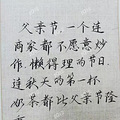 父亲节,一个连
商家都不愿意炒
作,懒得理的节日。
连秋天的第一杯
奶茶都比父亲节隆